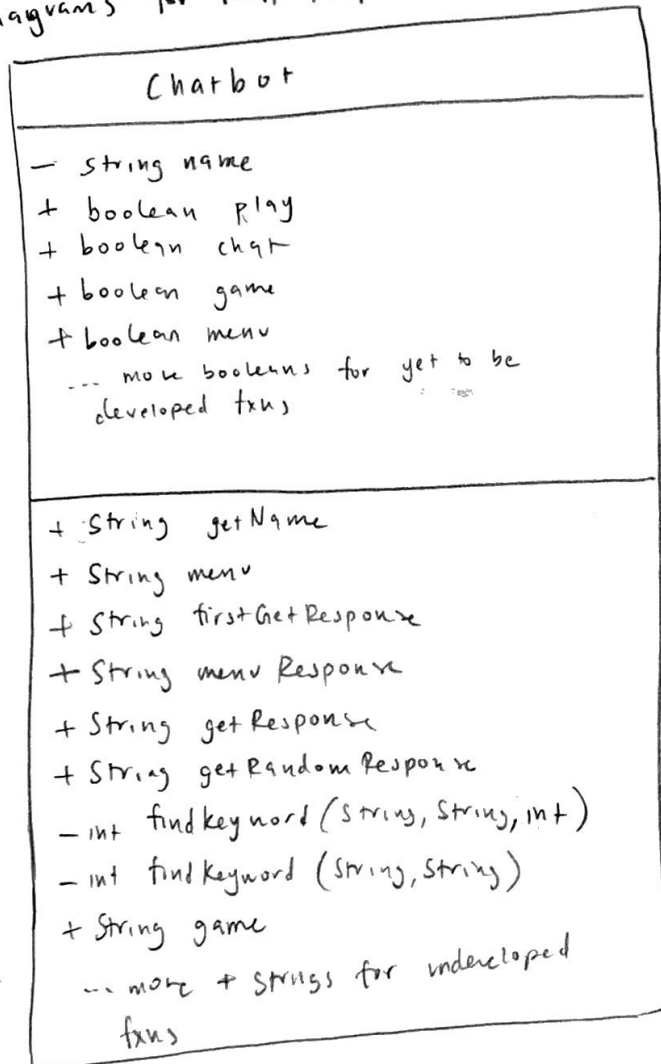 for
Chatbot
- String name
+ boolean play
+ boolean chat
+ boolean game
+ boolean menu
... more booleans for yet to be
developed fxns
+ String getName
+ String menu
+ String firstGetResponse
+ String menuResponse
+ String getResponse
+ String getRandomResponse
- int findkeyword (String, String, int)
- int findKeyword (String, String)
+ String game
... more + strings for undeveloped
fxns